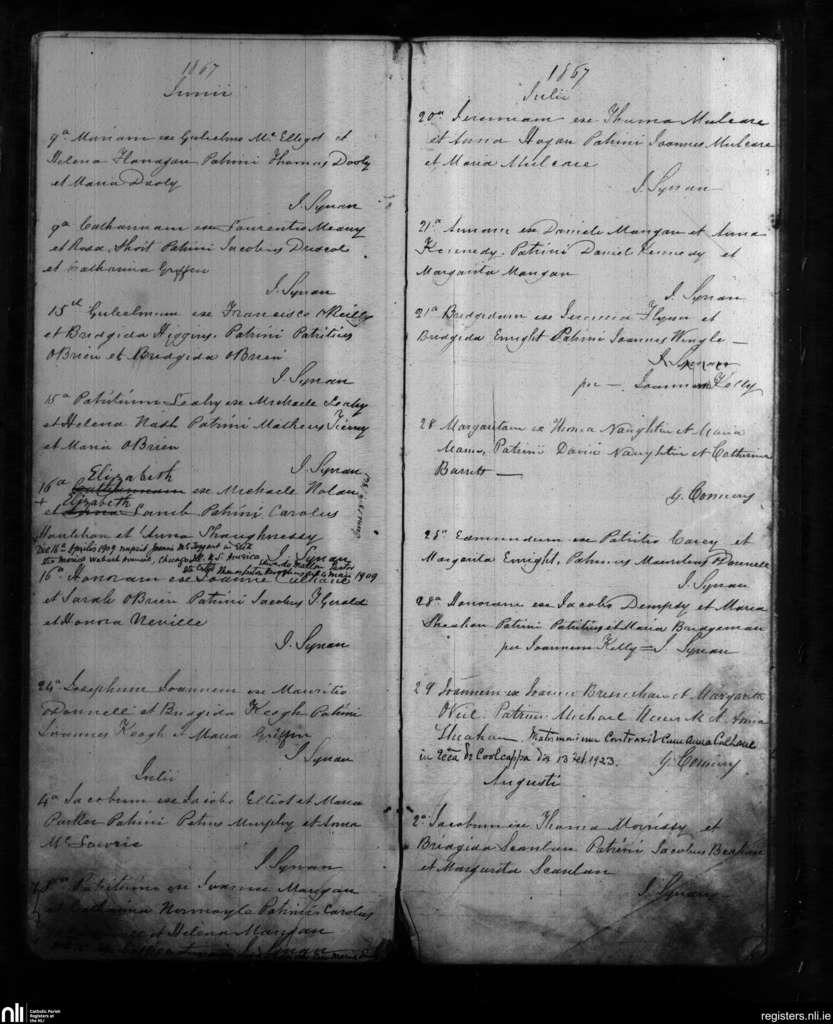 1867
Junii
9a Mariam ex Gulielmo Mc Elligot et
Helena Flanagan Patrini Thomas Dooly
et Maria Dooly
J. Synan
9a Catharinam ex Laurentio Meany
et Rosa Patrini Jacobus Driscol
et Catharina Griffin
J. Synan
15a Gulielmum ex Francisco O'Reilly
et Bridgida Higgins Patrini Patritius
O Brien et Bridgida O Brien
J. Synan
15a Patritium Leahy ex Michaele Leahy
et Helena Nash Patrini Matheus Tierny
et Maria O Brien
J. Synan
Elizabeth
16a Catherinam ex Michaele Nolan
+ Elizabeth
et Anna Lamb Patrini Carolus
Moulahan et Anna Shaughnessy
J. Synan
Die 16a Aprilis 1909 nupsit
Wabash Avenue, Chicago Ill. U.S. America
1909
16a Honoram ex Joanne Culhane
et Sarah O Brien Patrini Jacobus F Gerald
et Honora Neville
J. Synan
24a Josephum Joannem ex Mauritio
O Donnell et Bridgida Keogh Patrini
Joannes Keogh & Maria Griffin
J. Synan
Julii
4a Jacobum ex Jacobo Elliot et Maria
Parker Patrini Petrus Murphy et Anna
Mc
J. Synan
Patritium ex Joanne Mangan
et Catharina Normoyle Patrini Carolus
et Helena Mangan
J. Synan
1867
Julii
20a Jeremiam ex Thoma Mulcare
et Anna Hogan Patrini Joannes Mulcare
et Maria Mulcare
J. Synan
21a Annam ex Daniele Mangan et Anna
Kennedy. Patrini Daniel Kennedy et
Margarita Mangan
J. Synan
21a Bridgidam ex Jeremia Flynn et
Bridgida Enright Patrini Joannes Wingle —
J. Synan
per — Joannem Kelly
28 Margaritam ex Thoma Naughtin et Maria
Patrini David Naughtin et Catherina
Barrett —
G. Conway
28a Edmundum ex Patritio Carey et
Margarita Enright, Patrinus Mauritius O Donnell
J. Synan
28a Honoram ex Jacobo Dempsy et Maria
Sheahan Patrini Patritius et Maria Bridgeman
per Joannem Kelly = J. Synan
29 Joannem ex Joanne Bresnehan et Margarita
O Neil. Patrini Michael et Anna
Sheahan. Matrimonium Contraxit Cum Anna Culhane
in Coolcappa die 13 1923.
G. Conway
Augusti
2a Jacobum ex Thoma Morrissy et
Bridgida Scanlan Patrini Jacobus
et Margarita Scanlan
J. Synan
nli
Catholic Parish
Registers at
the NLI
registers.nli.ie